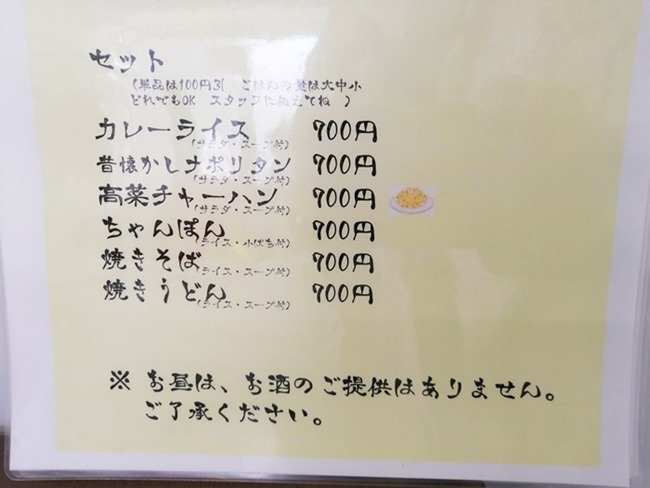 セット
(単品は100円引 ごはんの量は大中小
どれでもOK スタッフに伝えてね )
カレーライス 700円
(サラダ・スープ付)
昔懐かしナポリタン 700円
(サラダ・スープ付)
高菜チャーハン 700円
(サラダ・スープ付)
ちゃんぽん 700円
(ライス・小ばち付)
焼きそば 700円
(ライス・スープ付)
焼きうどん 700円
(ライス・スープ付)
※ お昼は、お酒のご提供はありません。
ご了承ください。